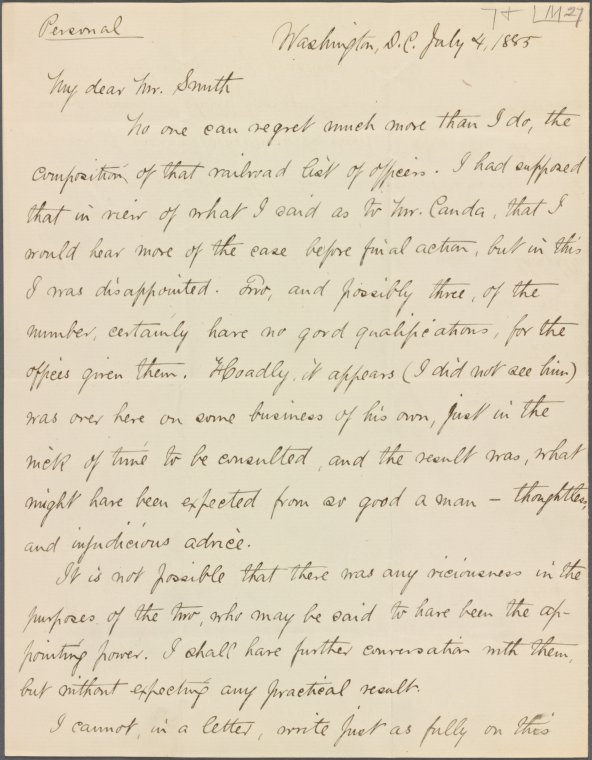 Personal
7+ LM 27
Washington, D.C. July 4, 1885
My dear Mr. Smith
No one can regret much more than I do, the
composition, of that railroad list of officers. I had supposed
that in view of what I said as to Mr. Canda, that I
would hear more of the case before final action, but in this
I was disappointed. Two, and possibly three, of the
number, certainly have no good qualifications, for the
offices given them. Hoadly, it appears (I did not see him)
was over here on some business of his own, just in the
nick of time to be consulted, and the result was, what
might have been expected from so good a man – thoughtless,
and injudicious advice.
It is not possible that there was any viciousness in the
purposes of the two, who may be said to have been the ap-
pointing power. I shall have further conversation with them,
but without expecting any practical result.
I cannot, in a letter, write just as fully on this